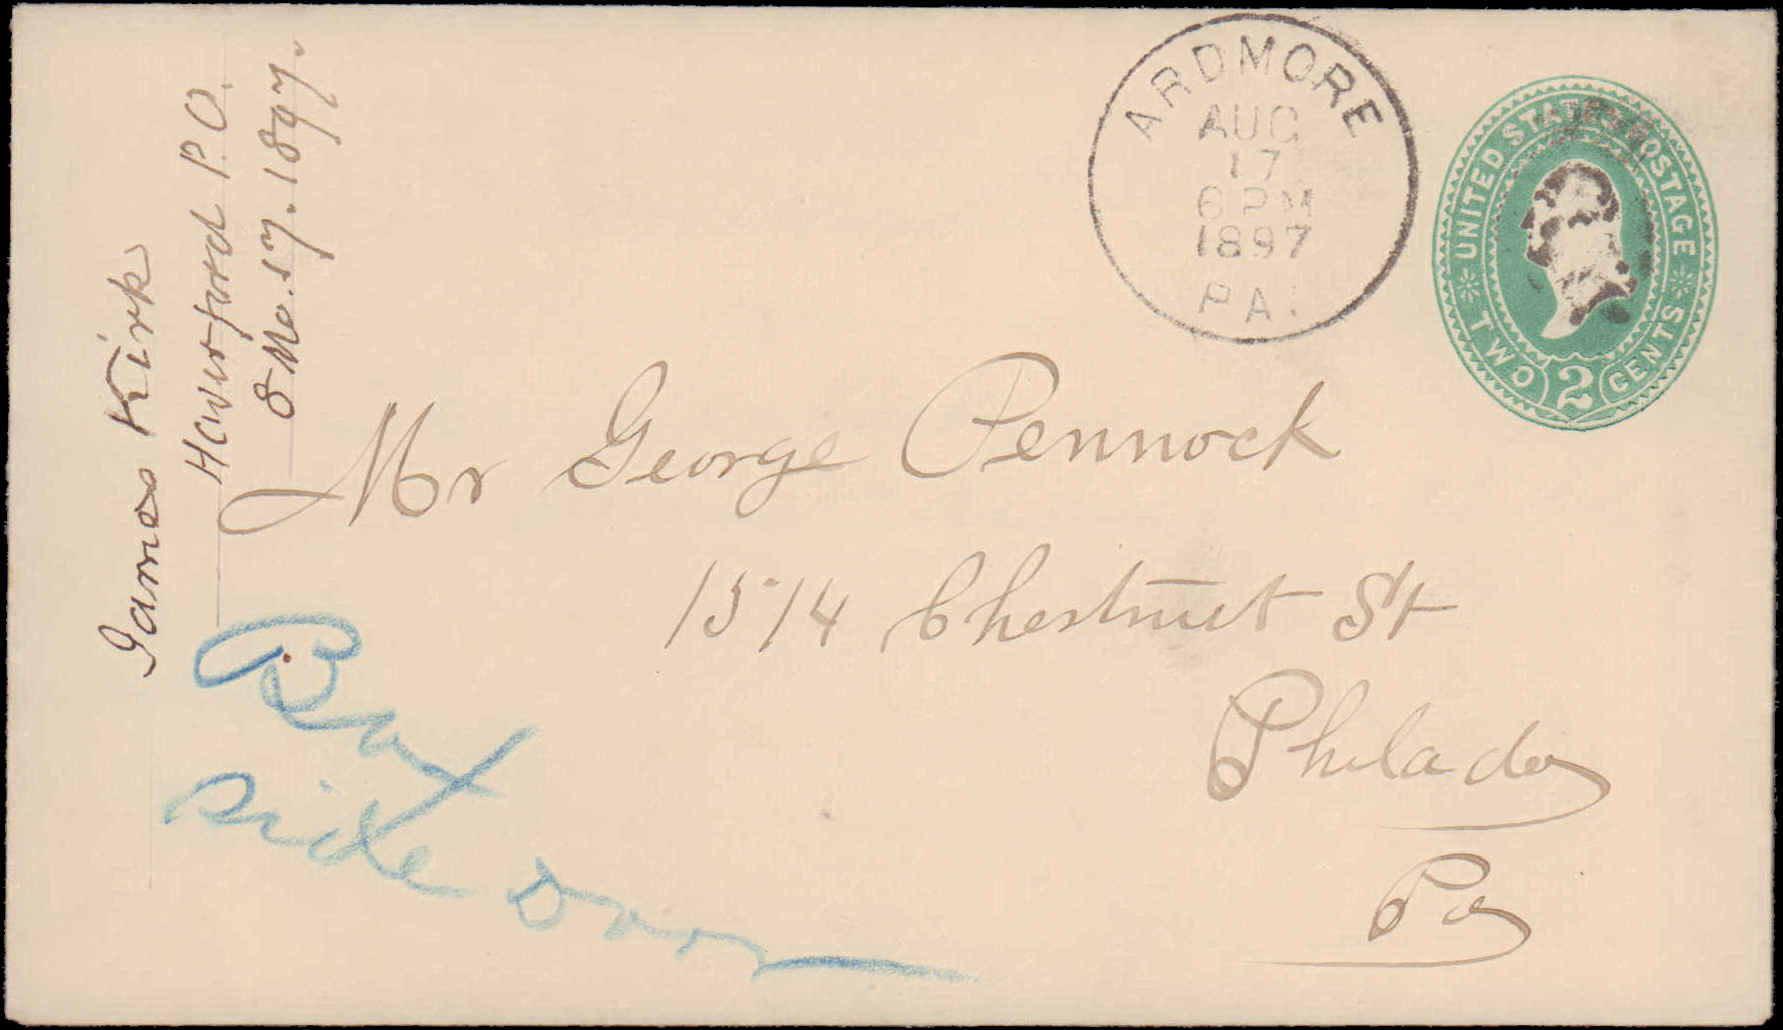 James Kirk
Haverford P.O.
8 Mo. 17. 1897.
ARDMORE
AUG
17
6 PM
1897
PA.
UNITED STATES POSTAGE
TWO 2 CENTS
Mr George Pennock
1514 Chestnut St
Philada
Pa
Box
Side Door